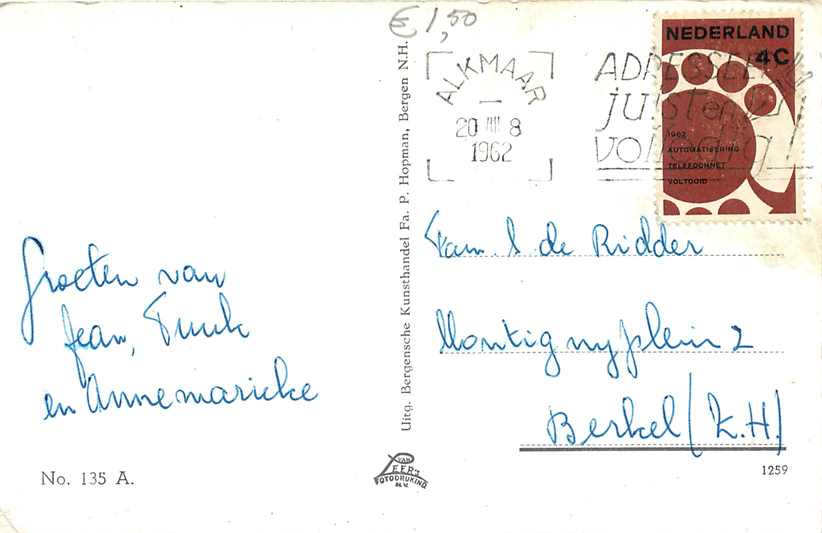 € 1,50
ALKMAAR
20 VIII 8
1962
ADRESSEER
juist en
volledig!
NEDERLAND
4C
1962
AUTOMATISERING
TELEFOONNET
VOLTOOID
Groeten van
Jean, Tuuk
en Annemarieke
Uitg. Bergensche Kunsthandel Fa. P. Hopman, Bergen N.H.
Fam. S. de Ridder
Montignyplein 2
Berkel (Z.H.)
No. 135 A.
VAN
LEER'S
FOTODRUKIND.
N.V.
1259